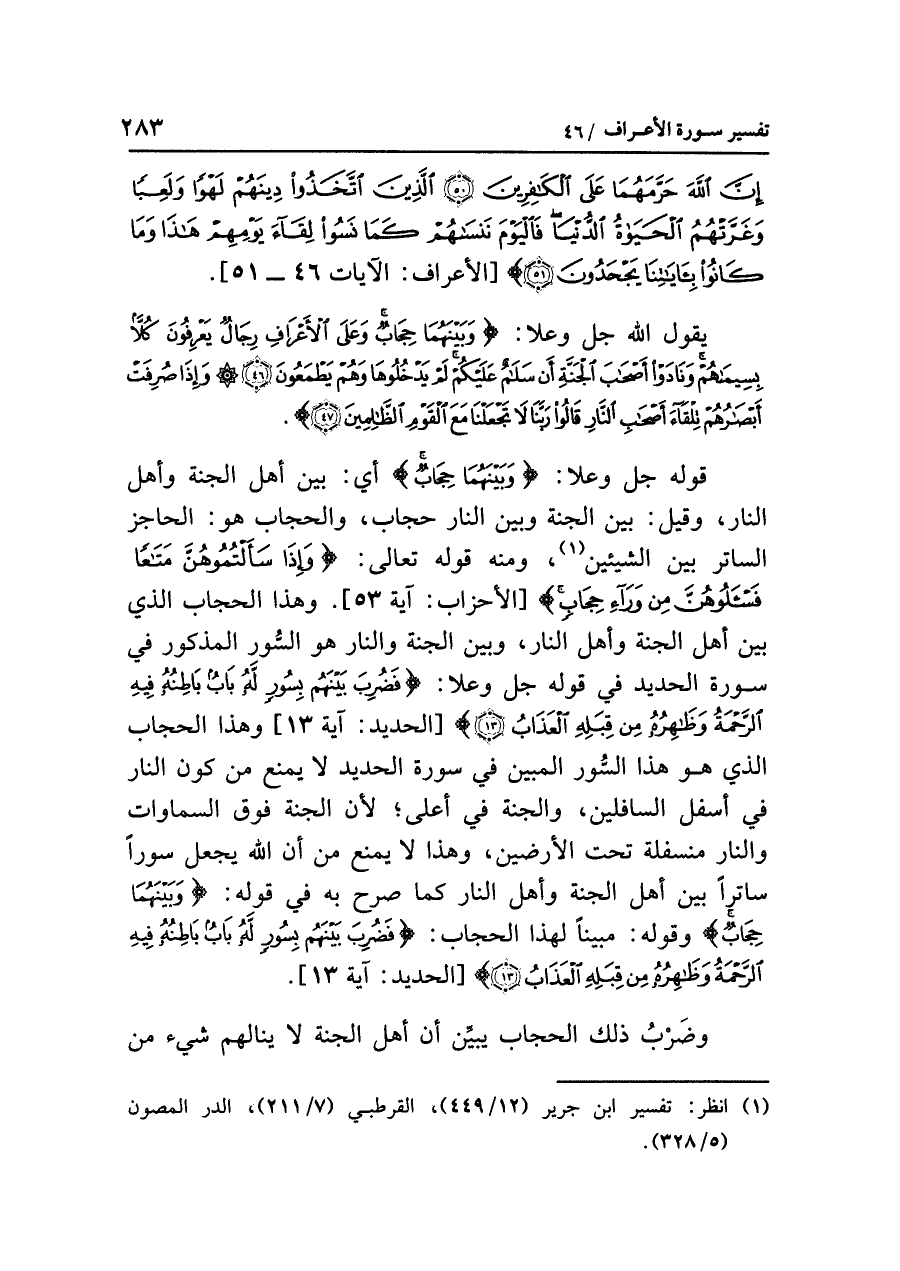 تفسير سورة الأعراف / ٤٦
٢٨٣
إِنَّ ٱللَّهَ حَرَّمَهُمَا عَلَى ٱلْكَٰفِرِينَ ۝٥٠ ٱلَّذِينَ ٱتَّخَذُوا۟ دِينَهُمْ لَهْوًا وَلَعِبًا
وَغَرَّتْهُمُ ٱلْحَيَوٰةُ ٱلدُّنْيَا ۖ فَٱلْيَوْمَ نَنسَىٰهُمْ كَمَا نَسُوا۟ لِقَآءَ يَوْمِهِمْ هَٰذَا وَمَا
كَانُوا۟ بِـَٔايَٰتِنَا يَجْحَدُونَ ۝٥١﴾ [الأعراف: الآيات ٤٦ ـ ٥١].
يقول الله جل وعلا: ﴿وَبَيْنَهُمَا حِجَابٌ ۚ وَعَلَى ٱلْأَعْرَافِ رِجَالٌ يَعْرِفُونَ كُلًّۢا
بِسِيمَىٰهُمْ ۚ وَنَادَوْا۟ أَصْحَٰبَ ٱلْجَنَّةِ أَن سَلَٰمٌ عَلَيْكُمْ ۚ لَمْ يَدْخُلُوهَا وَهُمْ يَطْمَعُونَ ۝٤٦ ۞ وَإِذَا صُرِفَتْ
أَبْصَٰرُهُمْ تِلْقَآءَ أَصْحَٰبِ ٱلنَّارِ قَالُوا۟ رَبَّنَا لَا تَجْعَلْنَا مَعَ ٱلْقَوْمِ ٱلظَّٰلِمِينَ ۝٤٧﴾.
قوله جل وعلا: ﴿وَبَيْنَهُمَا حِجَابٌ ۚ﴾ أي: بين أهل الجنة وأهل
النار، وقيل: بين الجنة وبين النار حجاب، والحجاب هو: الحاجز
الساتر بين الشيئين(١)، ومنه قوله تعالى: ﴿وَإِذَا سَأَلْتُمُوهُنَّ مَتَٰعًا
فَسْـَٔلُوهُنَّ مِن وَرَآءِ حِجَابٍ ۚ﴾ [الأحزاب: آية ٥٣]. وهذا الحجاب الذي
بين أهل الجنة وأهل النار، وبين الجنة والنار هو السُّور المذكور في
سورة الحديد في قوله جل وعلا: ﴿فَضُرِبَ بَيْنَهُم بِسُورٍ لَّهُۥ بَابٌۢ بَاطِنُهُۥ فِيهِ
ٱلرَّحْمَةُ وَظَٰهِرُهُۥ مِن قِبَلِهِ ٱلْعَذَابُ ۝١٣﴾ [الحديد: آية ١٣] وهذا الحجاب
الذي هو هذا السُّور المبين في سورة الحديد لا يمنع من كون النار
في أسفل السافلين، والجنة في أعلى؛ لأن الجنة فوق السماوات
والنار منسفلة تحت الأرضين، وهذا لا يمنع من أن الله يجعل سوراً
ساتراً بين أهل الجنة وأهل النار كما صرح به في قوله: ﴿وَبَيْنَهُمَا
حِجَابٌ ۚ﴾ وقوله: مبيناً لهذا الحجاب: ﴿فَضُرِبَ بَيْنَهُم بِسُورٍ لَّهُۥ بَابٌۢ بَاطِنُهُۥ فِيهِ
ٱلرَّحْمَةُ وَظَٰهِرُهُۥ مِن قِبَلِهِ ٱلْعَذَابُ ۝١٣﴾ [الحديد: آية ١٣].
وضَرْبُ ذلك الحجاب يبيِّن أن أهل الجنة لا ينالهم شيء من
(١) انظر: تفسير ابن جرير (١٢/٤٤٩)، القرطبي (٧/٢١١)، الدر المصون
(٥/٣٢٨).